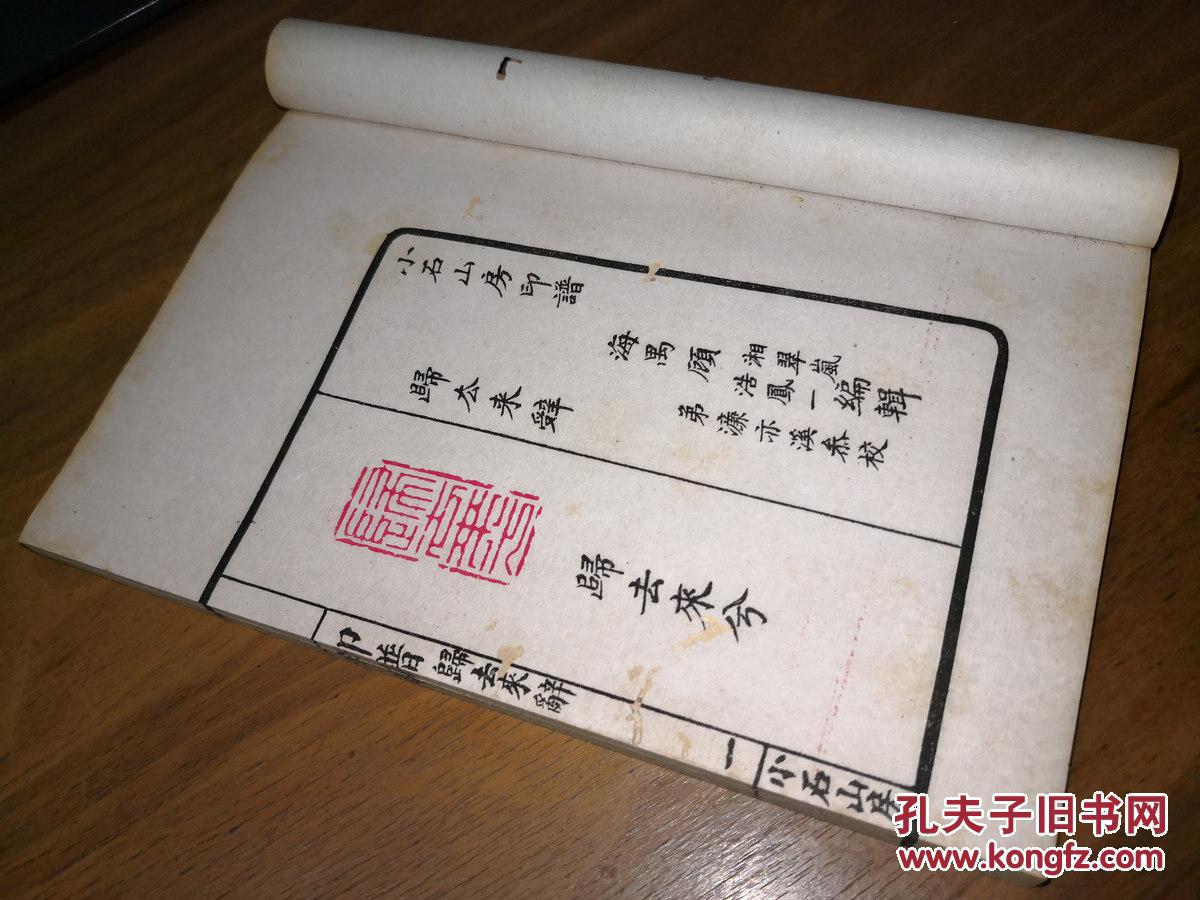 小石山房印譜
海禺顧
湘翠嵐
浩鳳一
編輯
弟濂亦溪叅校
歸厺来辤
歸去來兮
印譜
歸去來辭
一
小石山房
孔夫子旧书网
www.kongfz.com